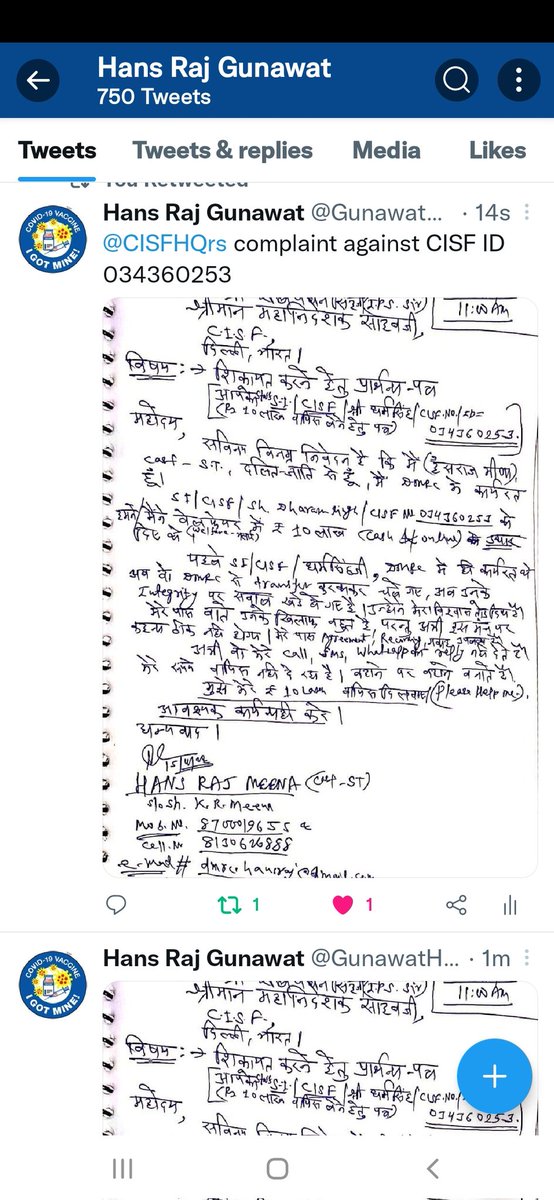 Hans Raj Gunawat
750 Tweets
Tweets Tweets & replies Media Likes
You Retweeted
Hans Raj Gunawat @Gunawat... · 14s
@CISFHQrs complaint against CISF ID
034360253
11:00 Am
श्रीमान महानिदेशक साहबजी,
C.I.S.F.
दिल्ली, भारत।
विषय :→ शिकायत करने हेतु प्रार्थना-पत्र
S.I./CISF/श्री धर्मसिंह/CISF.NO./ID=
034360253.
महोदय,
सविनय विनम्र निवेदन है कि मैं (हंसराज मीणा)
Cast-ST., दलित-जाति से हूँ, मैं DMRC में कार्यरत
हूँ।
SI/CISF/Sh. Dharam Singh/CISF No. 034360253 को
₹ 10 लाख (Cash & online)
पहले SI/CISF/धर्मसिंहजी, DMRC में ही कार्यरत थे
अब वो DMRC से transfer करवाकर चले गए, अब उनके
Integrity पर सवाल खड़े हो गए है। उन्होंने मेरा विश्वास तोड़ दिया है।
मेरे पास बात उनके खिलाफ बहुत है, परन्तु अभी इस मंच पर
कहना ठीक नहीं होगा। मेरे पास Agreement, Recording, गवाह
अभी वो मेरे call, sms, Whatsapp का reply नहीं देते है।
मेरे रुपये वापिस नहीं दे रहा है। बहाने पर बहाने बनाते है।
मुझे मेरे ₹ 10 Lakh वापिस दिलवाए (Please Help me).
आवश्यक कार्यवाही करे।
धन्यवाद।
HANS RAJ MEENA (Cast-ST)
S/o Sh. K.R. Meena
Mob. No. 8700019655 &
Cell. No 8130626888
e-mail# dmrchansraj@gmail.com
1 1
Hans Raj Gunawat @GunawatH... · 1m
11:00 Am
श्रीमान महानिदेशक साहबजी,
C.I.S.F.
दिल्ली, भारत।
विषय :→ शिकायत करने हेतु प्रार्थना-पत्र
S.I./CISF/श्री धर्मसिंह/CISF.NO.
034360253.
महोदय,